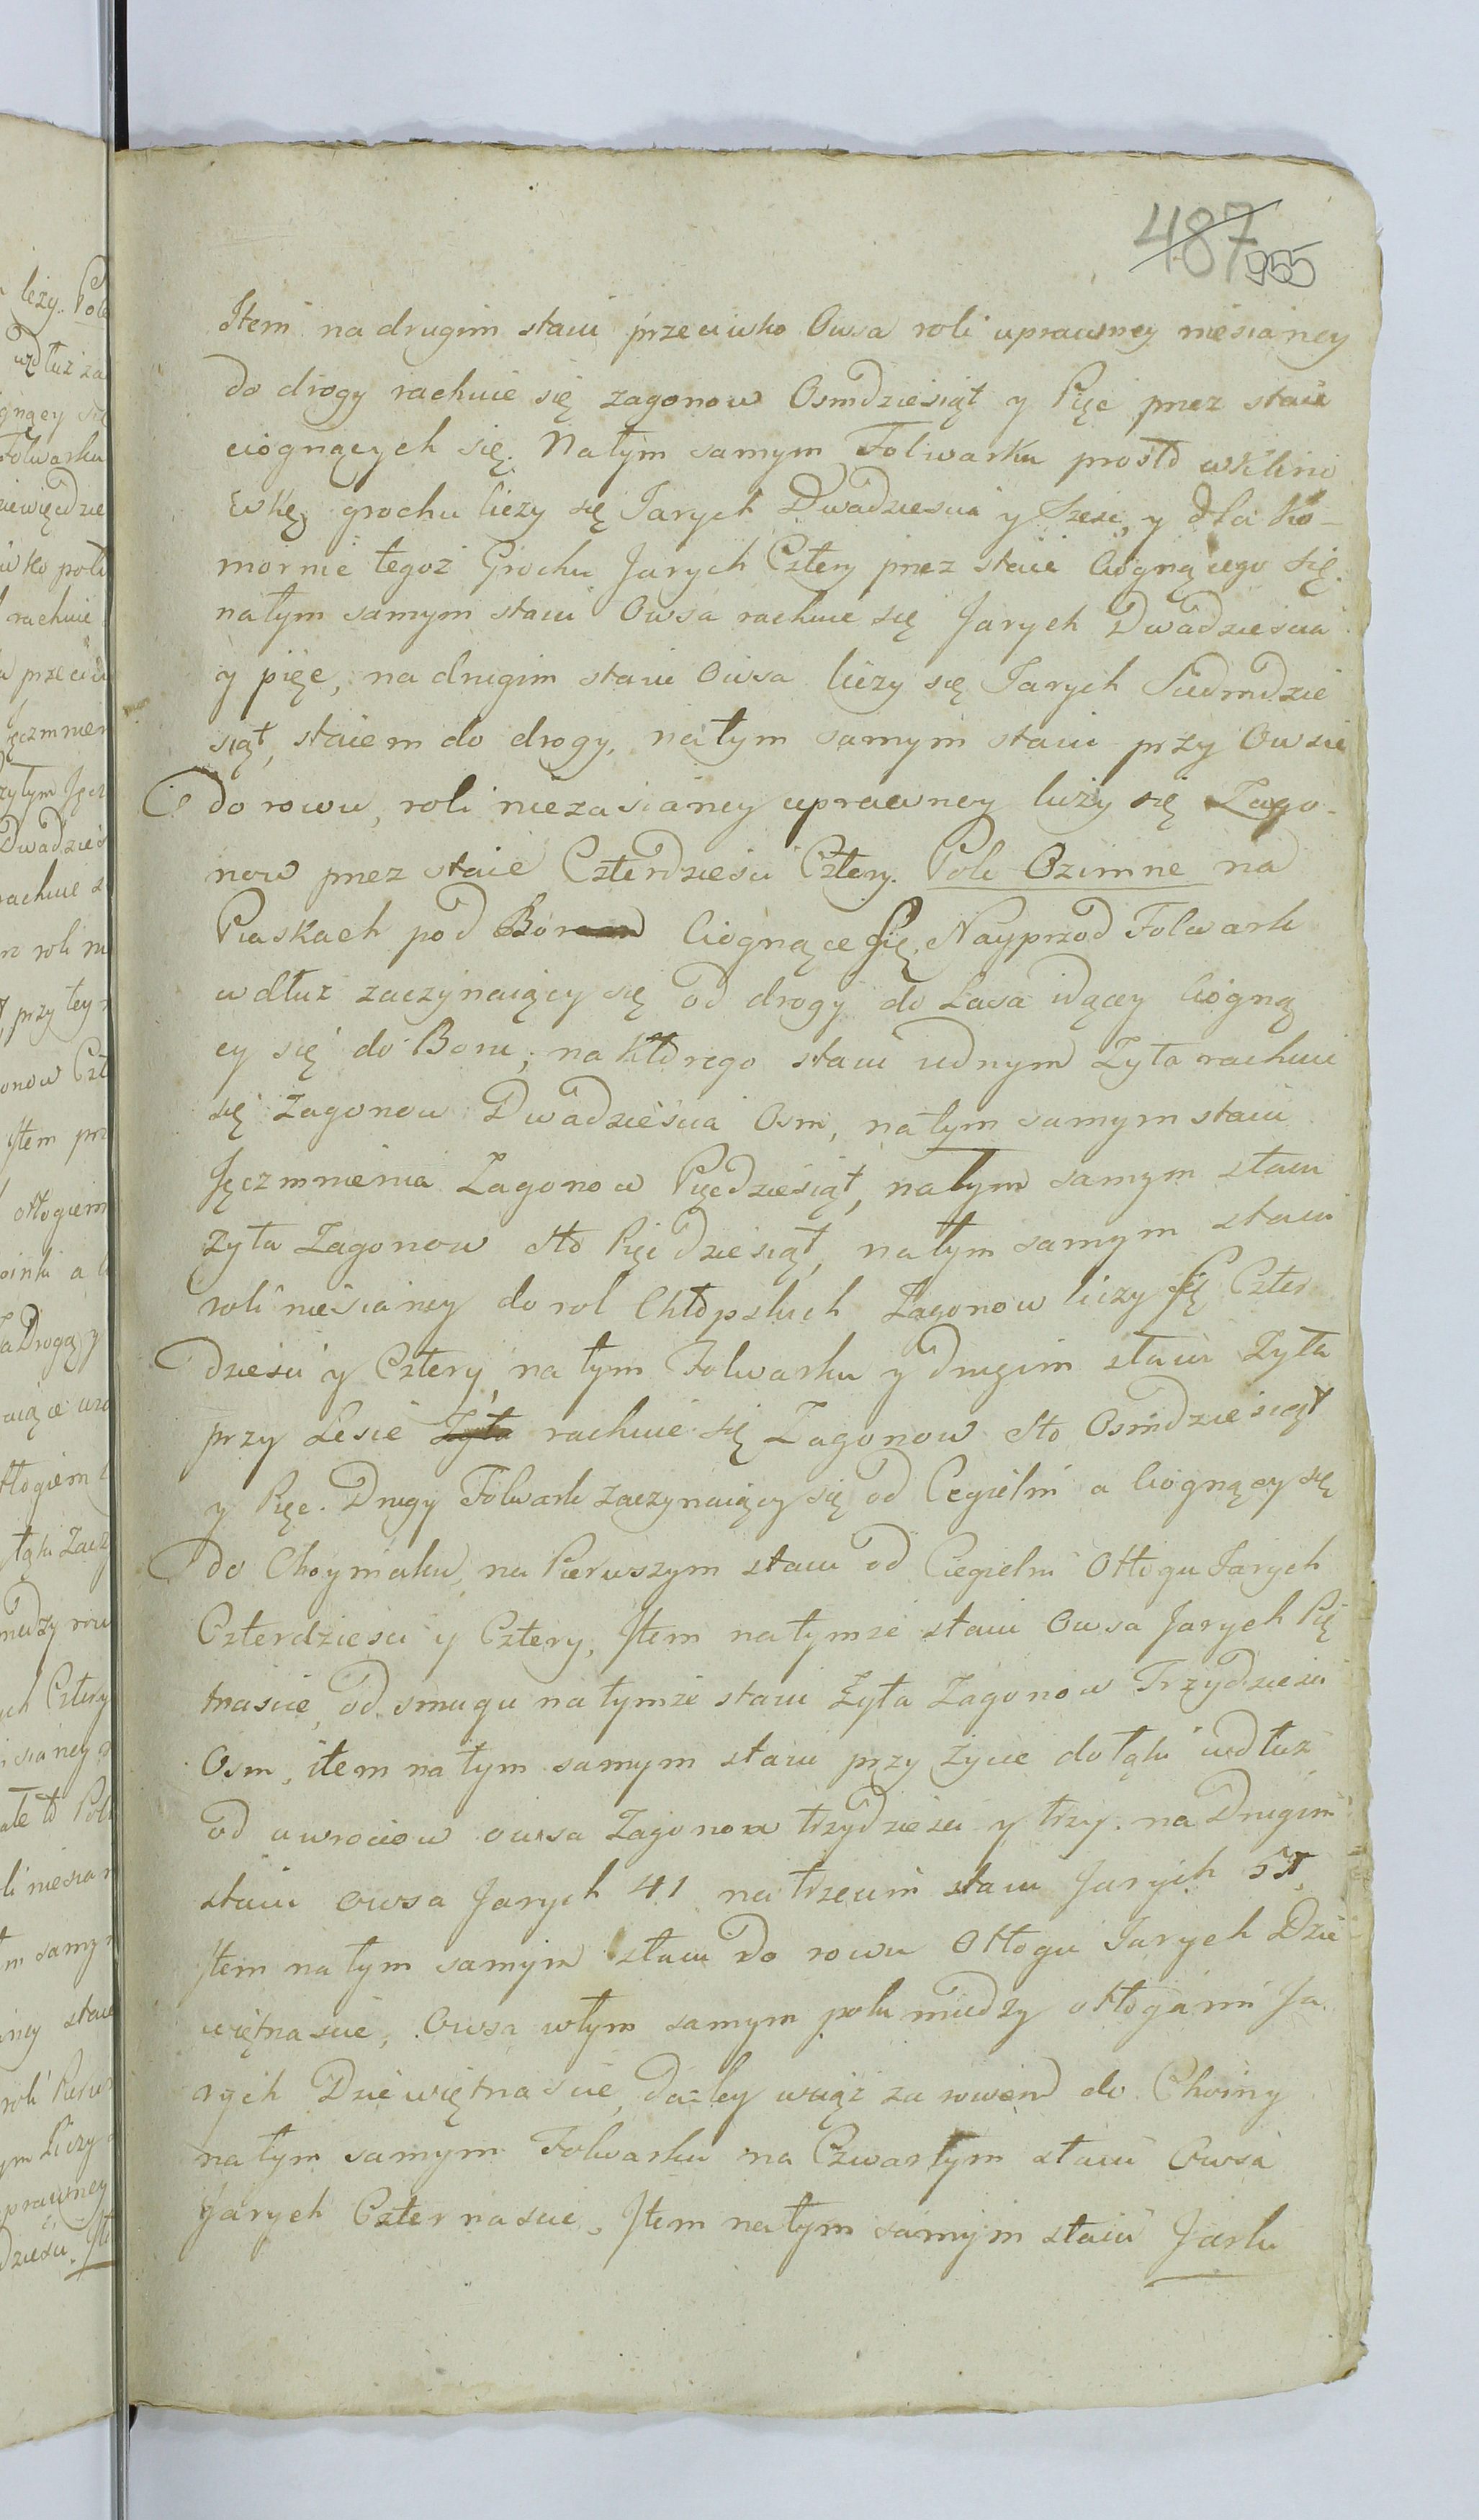 487
955
Item na drugim staiu przeciwko Owsa roli uprawney niesianey
do drogy rachuie się zagonow Osmdziesiąt y Pięc przez staie
ciognących się. Natym samym Folwarku prosto wklino
wkę grochu liczy się Jarych Dwadziescia y Szesc, y dla Ko-
mornic tegoż Grochu Jarych Cztery przez staie ciognącego się.
natym samym staiu Owsa rachuie się Jarych Dwadziescia
y pięc, na drugim staiu Owsa liczy się Jarych Siedmdzie
siąt, staiem do drogy, natym samym staiu przy Owsie
do rowu, roli niezasianey uprawney liczy się Zago-
now przez staie Czterdziesci Cztery. Pole Ozimne na
Piaskach pod Borem ciognące się. Nayprzod Folwark
wdłuż zaczynaiący się od drogy do Lasa idącey ciogną
cy się do Boru, na ktorego staiu iednym Zyta rachuie
się Zagonow Dwadziescia Osm, natym samym staiu
Jęczmnienia Zagonow Pięcdziesiąt, natym samym staiu
Zyta Zagonow sto Pięcdziesiąt, natym samym staiu
roli niesianey do rol Chłopskich Zagonow liczy się Czter
dziesci y Cztery, na tym Folwarku y drugim staiu Zyta
przy Lesie Zyta rachuie się Zagonow sto Osmdziesiąt
y Pięc. Drugy Folwark zaczynaiący się od Cegielni a ciognący się
do Choyniaku, na Pierwszym staiu od Ciegielni Otłogu Jarych
Czterdziesci y Cztery, Item natymże staiu Owsa Jarych Pię
tnascie, od smugu natymże staiu Zyta Zagonow Trzydziesci
Osm, item na tym samym staiu przy życie do łąki wdłuż
od uwrociow owsa Zagonow trzydziesci y trzy. na Drugim
staiu owsa Jarych 41 na trzecim staiu Jarych 55,
Item na tym samym staiu do rowu Otłogu Jarych Dzie
więtnascie, Owsa wtym samym polu miedzy otłogami Ja
rych Dziewiętnascie, daley wciąż za rowem do Choiny
na tym samym Folwarku na Czwartym staiu Owsa
Jarych Czternascie, Item na tym samym staiu Jarlu